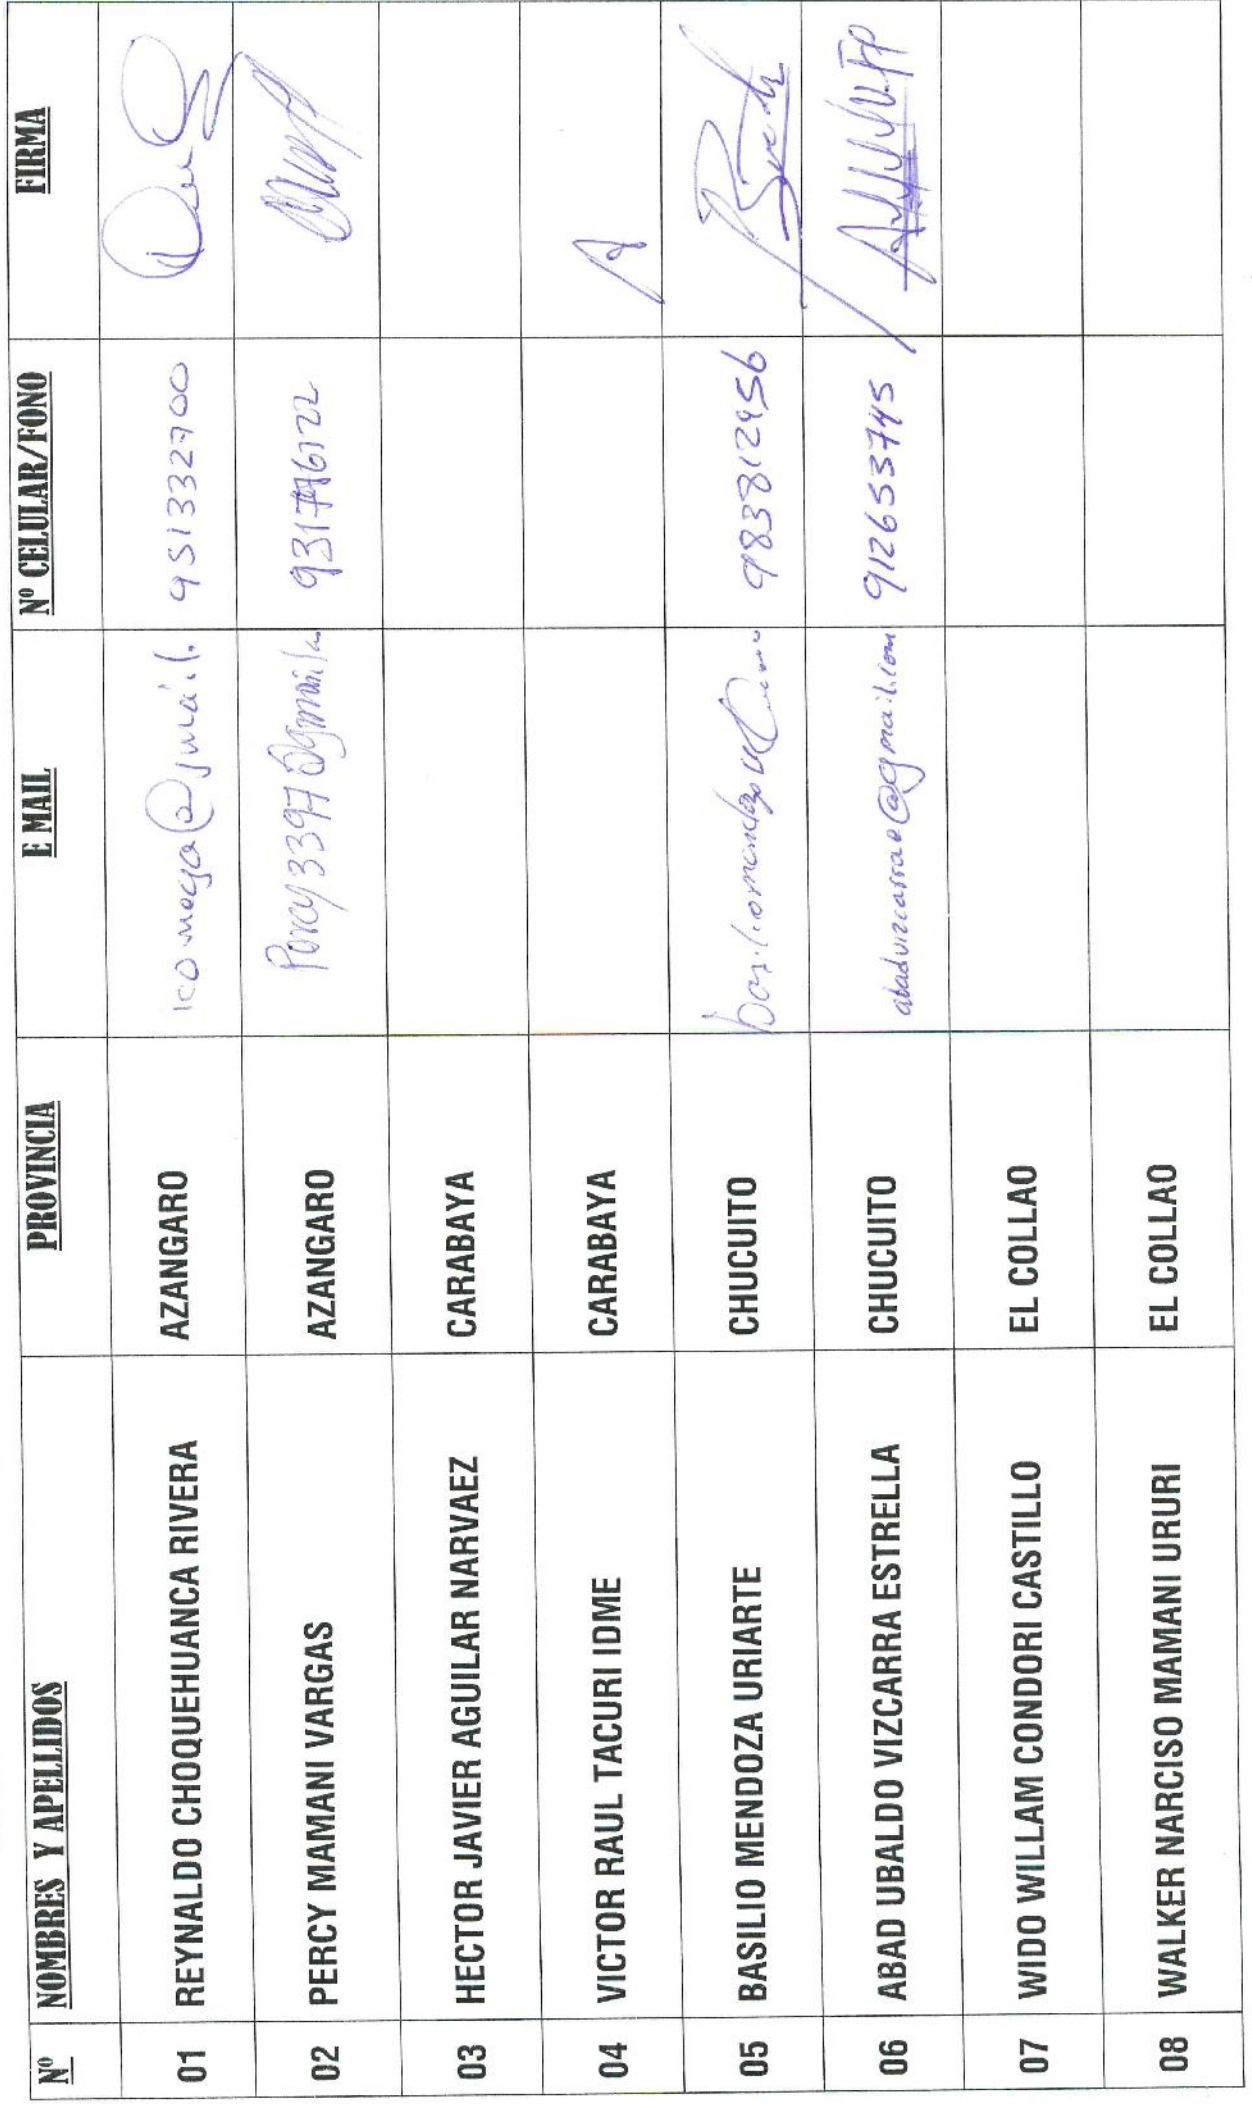 Nº NOMBRES Y APELLIDOS PROVINCIA E MAIL Nº CELULAR/FONO FIRMA
01 REYNALDO CHOQUEHUANCA RIVERA AZANGARO 951332700
02 PERCY MAMANI VARGAS AZANGARO
03 HECTOR JAVIER AGUILAR NARVAEZ CARABAYA
04 VICTOR RAUL TACURI IDME CARABAYA
05 BASILIO MENDOZA URIARTE CHUCUITO 983812456
06 ABAD UBALDO VIZCARRA ESTRELLA CHUCUITO 912653745
07 WIDO WILLAM CONDORI CASTILLO EL COLLAO
08 WALKER NARCISO MAMANI URURI EL COLLAO